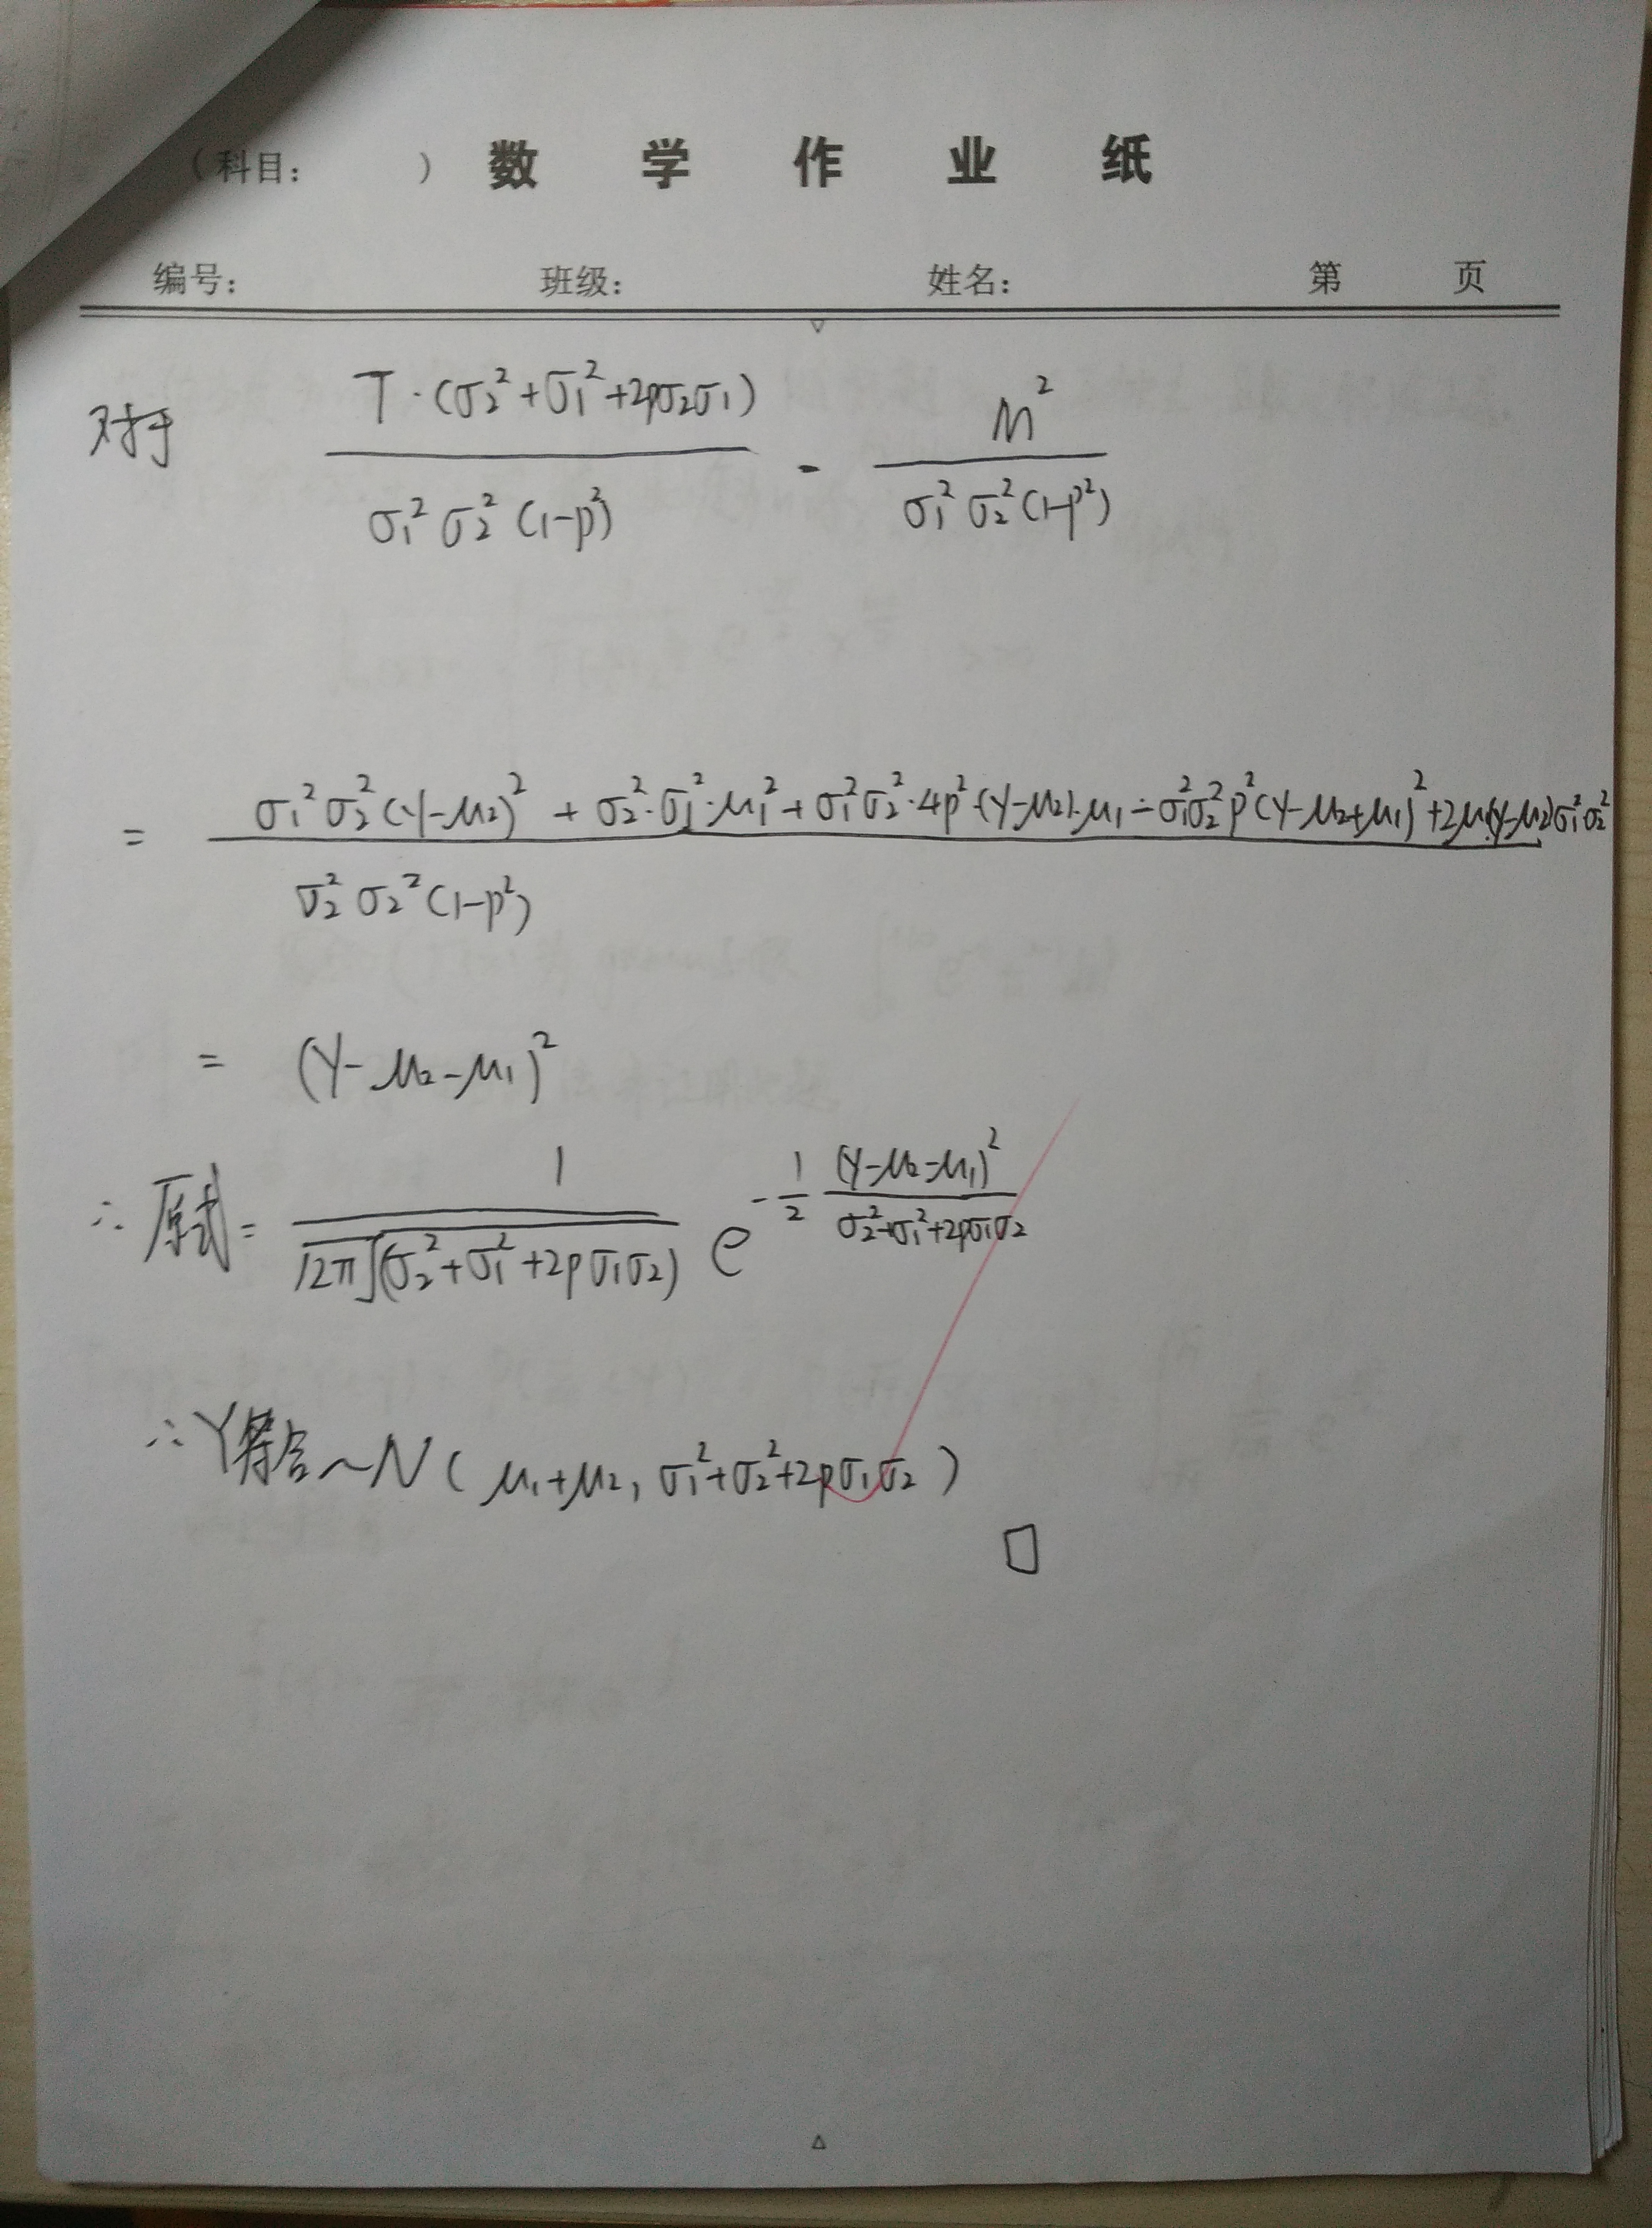 （科目：　　） 数 学 作 业 纸
编号： 班级： 姓名： 第 页
对于 T·(σ₂²+σ₁²+2ρσ₂σ₁) / σ₁²σ₂²(1-ρ²) - M² / σ₁²σ₂²(1-ρ²)
= σ₁²σ₂²(y-μ₂)² + σ₂²·σ₁²·μ₁² + σ₁²σ₂²·4ρ²·(y-μ₂)·μ₁ - σ₁²σ₂²ρ²(y-μ₂+μ₁)² + 2μ₁(y-μ₂)σ₁²σ₂² / σ₂²σ₂²(1-ρ²)
= (y-μ₂-μ₁)²
∴ 原式 = 1 / √2π √(σ₂²+σ₁²+2ρσ₁σ₂) e^{-1/2 (y-μ₂-μ₁)² / σ₂²+σ₁²+2ρσ₁σ₂}
∴ Y符合~N(μ₁+μ₂, σ₁²+σ₂²+2ρσ₁σ₂)